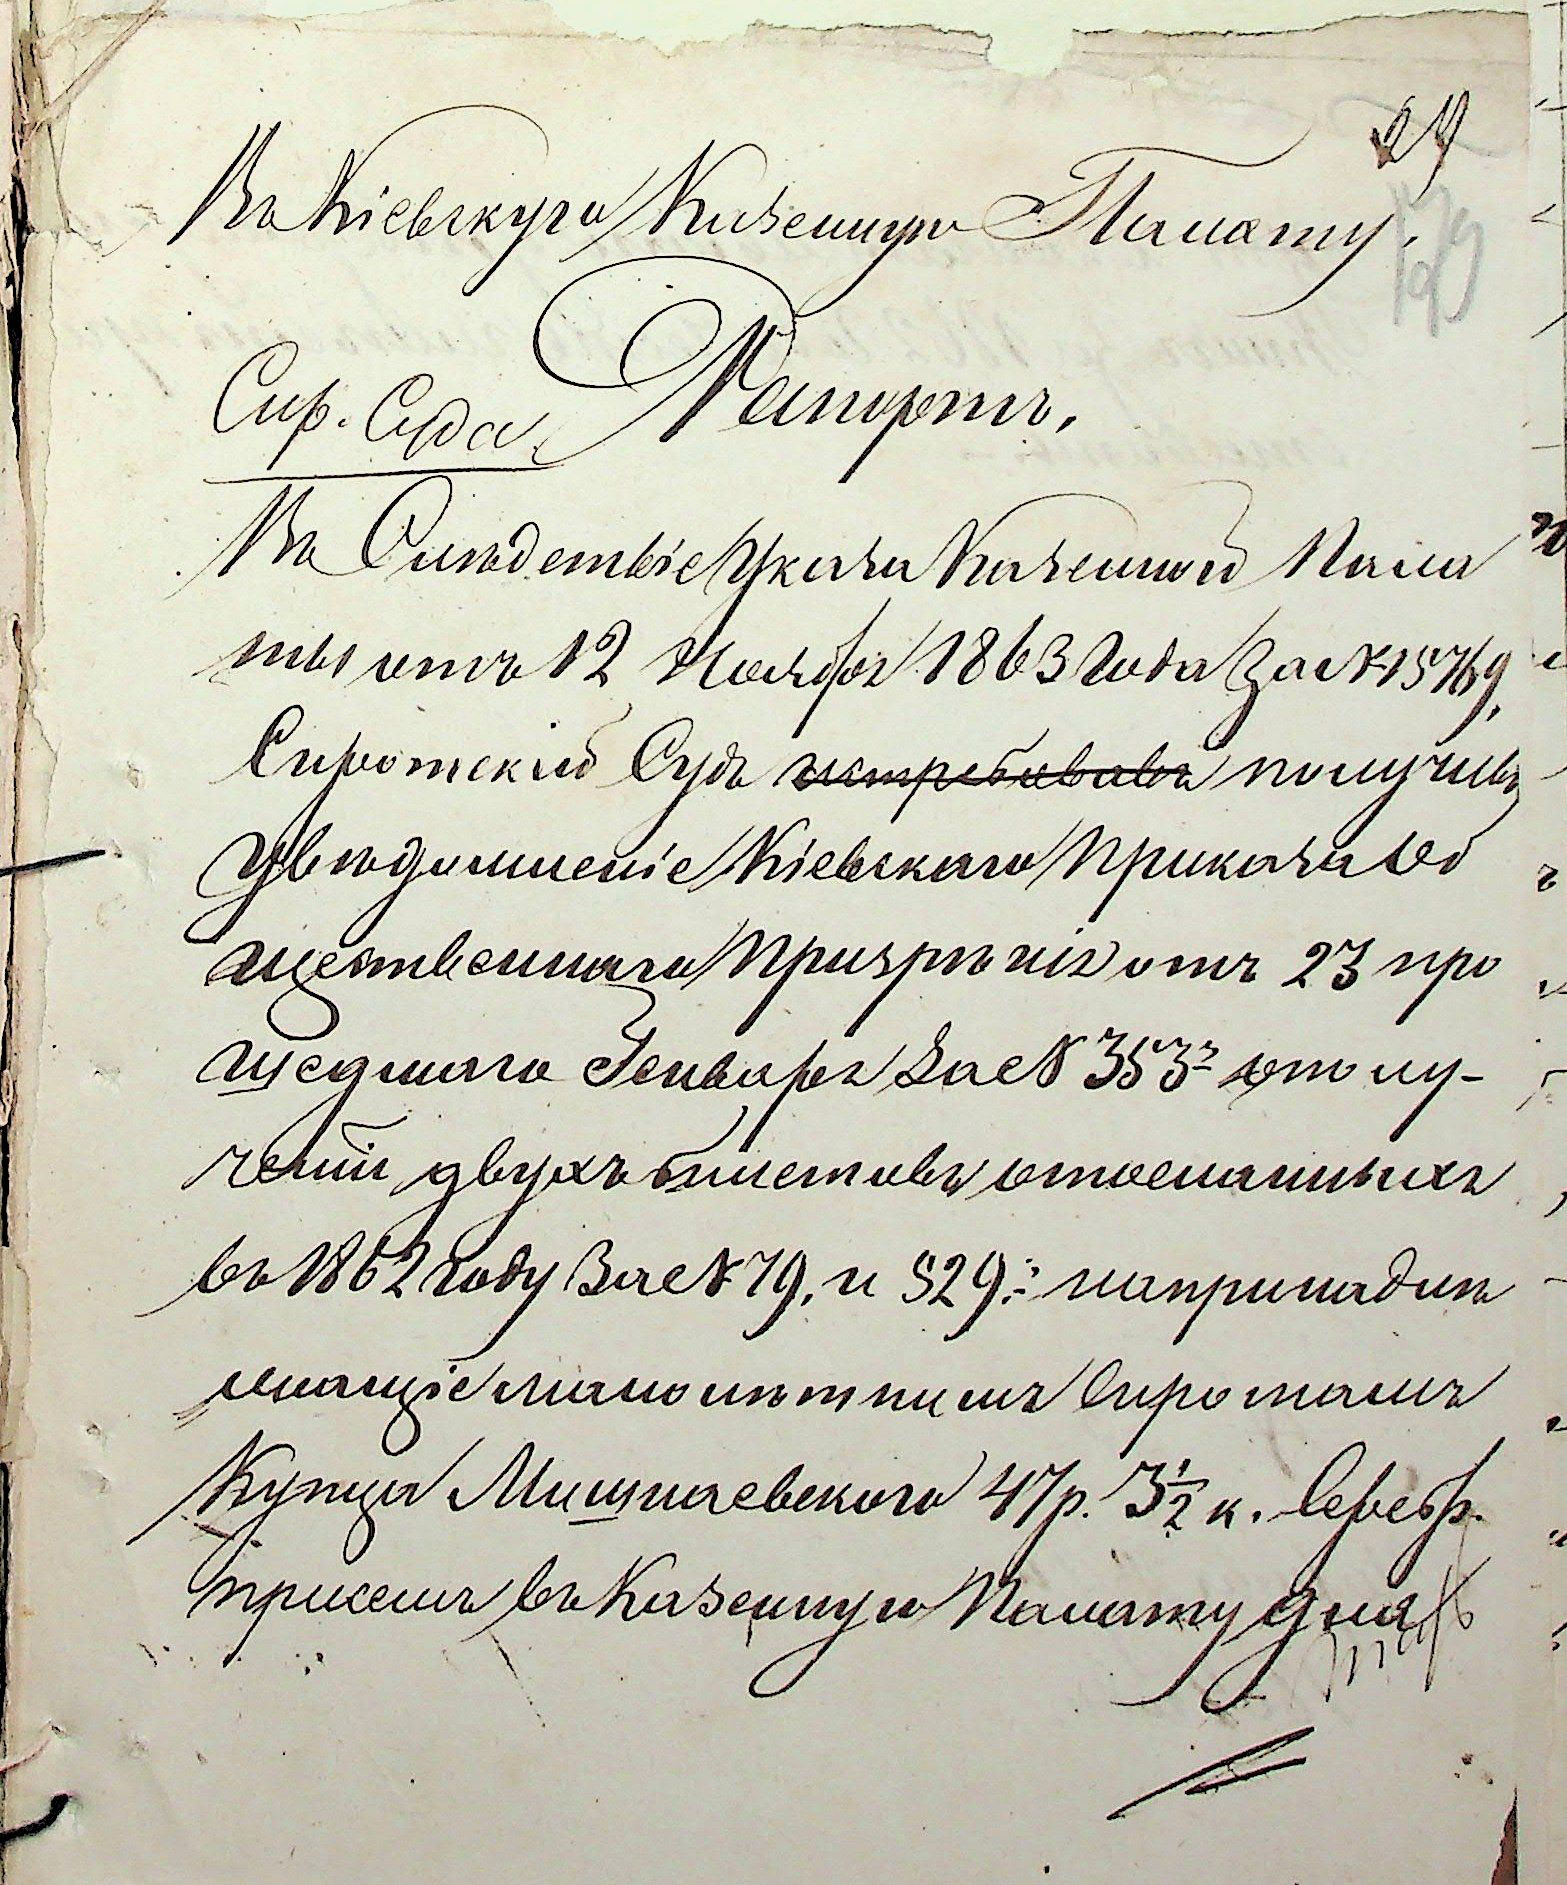 24
Въ Кіевскую Казенную Палату.
199
Сир. Суда
Рапортъ,
Въ Слѣдствіе Указа Казенной Пала
ты отъ 12 Ноября 1863 Года За № 15769,
Сиротскій Судъ истребовавъ получивъ
увѣдомленіе Кіевскаго Приказа Об
щественнаго Призрѣнія отъ 23 про
шедшаго Генваря За № 353 о полу-
ченіи двухъ билетовъ отосланныхъ
въ 1862 году За № 79, и 529: на принадле
жащіе малолѣтнимъ Сиротамъ
Купца Мишнаевскаго 47 р. 3 1/2 к. Серебр.
причемъ въ Казенную Палату для